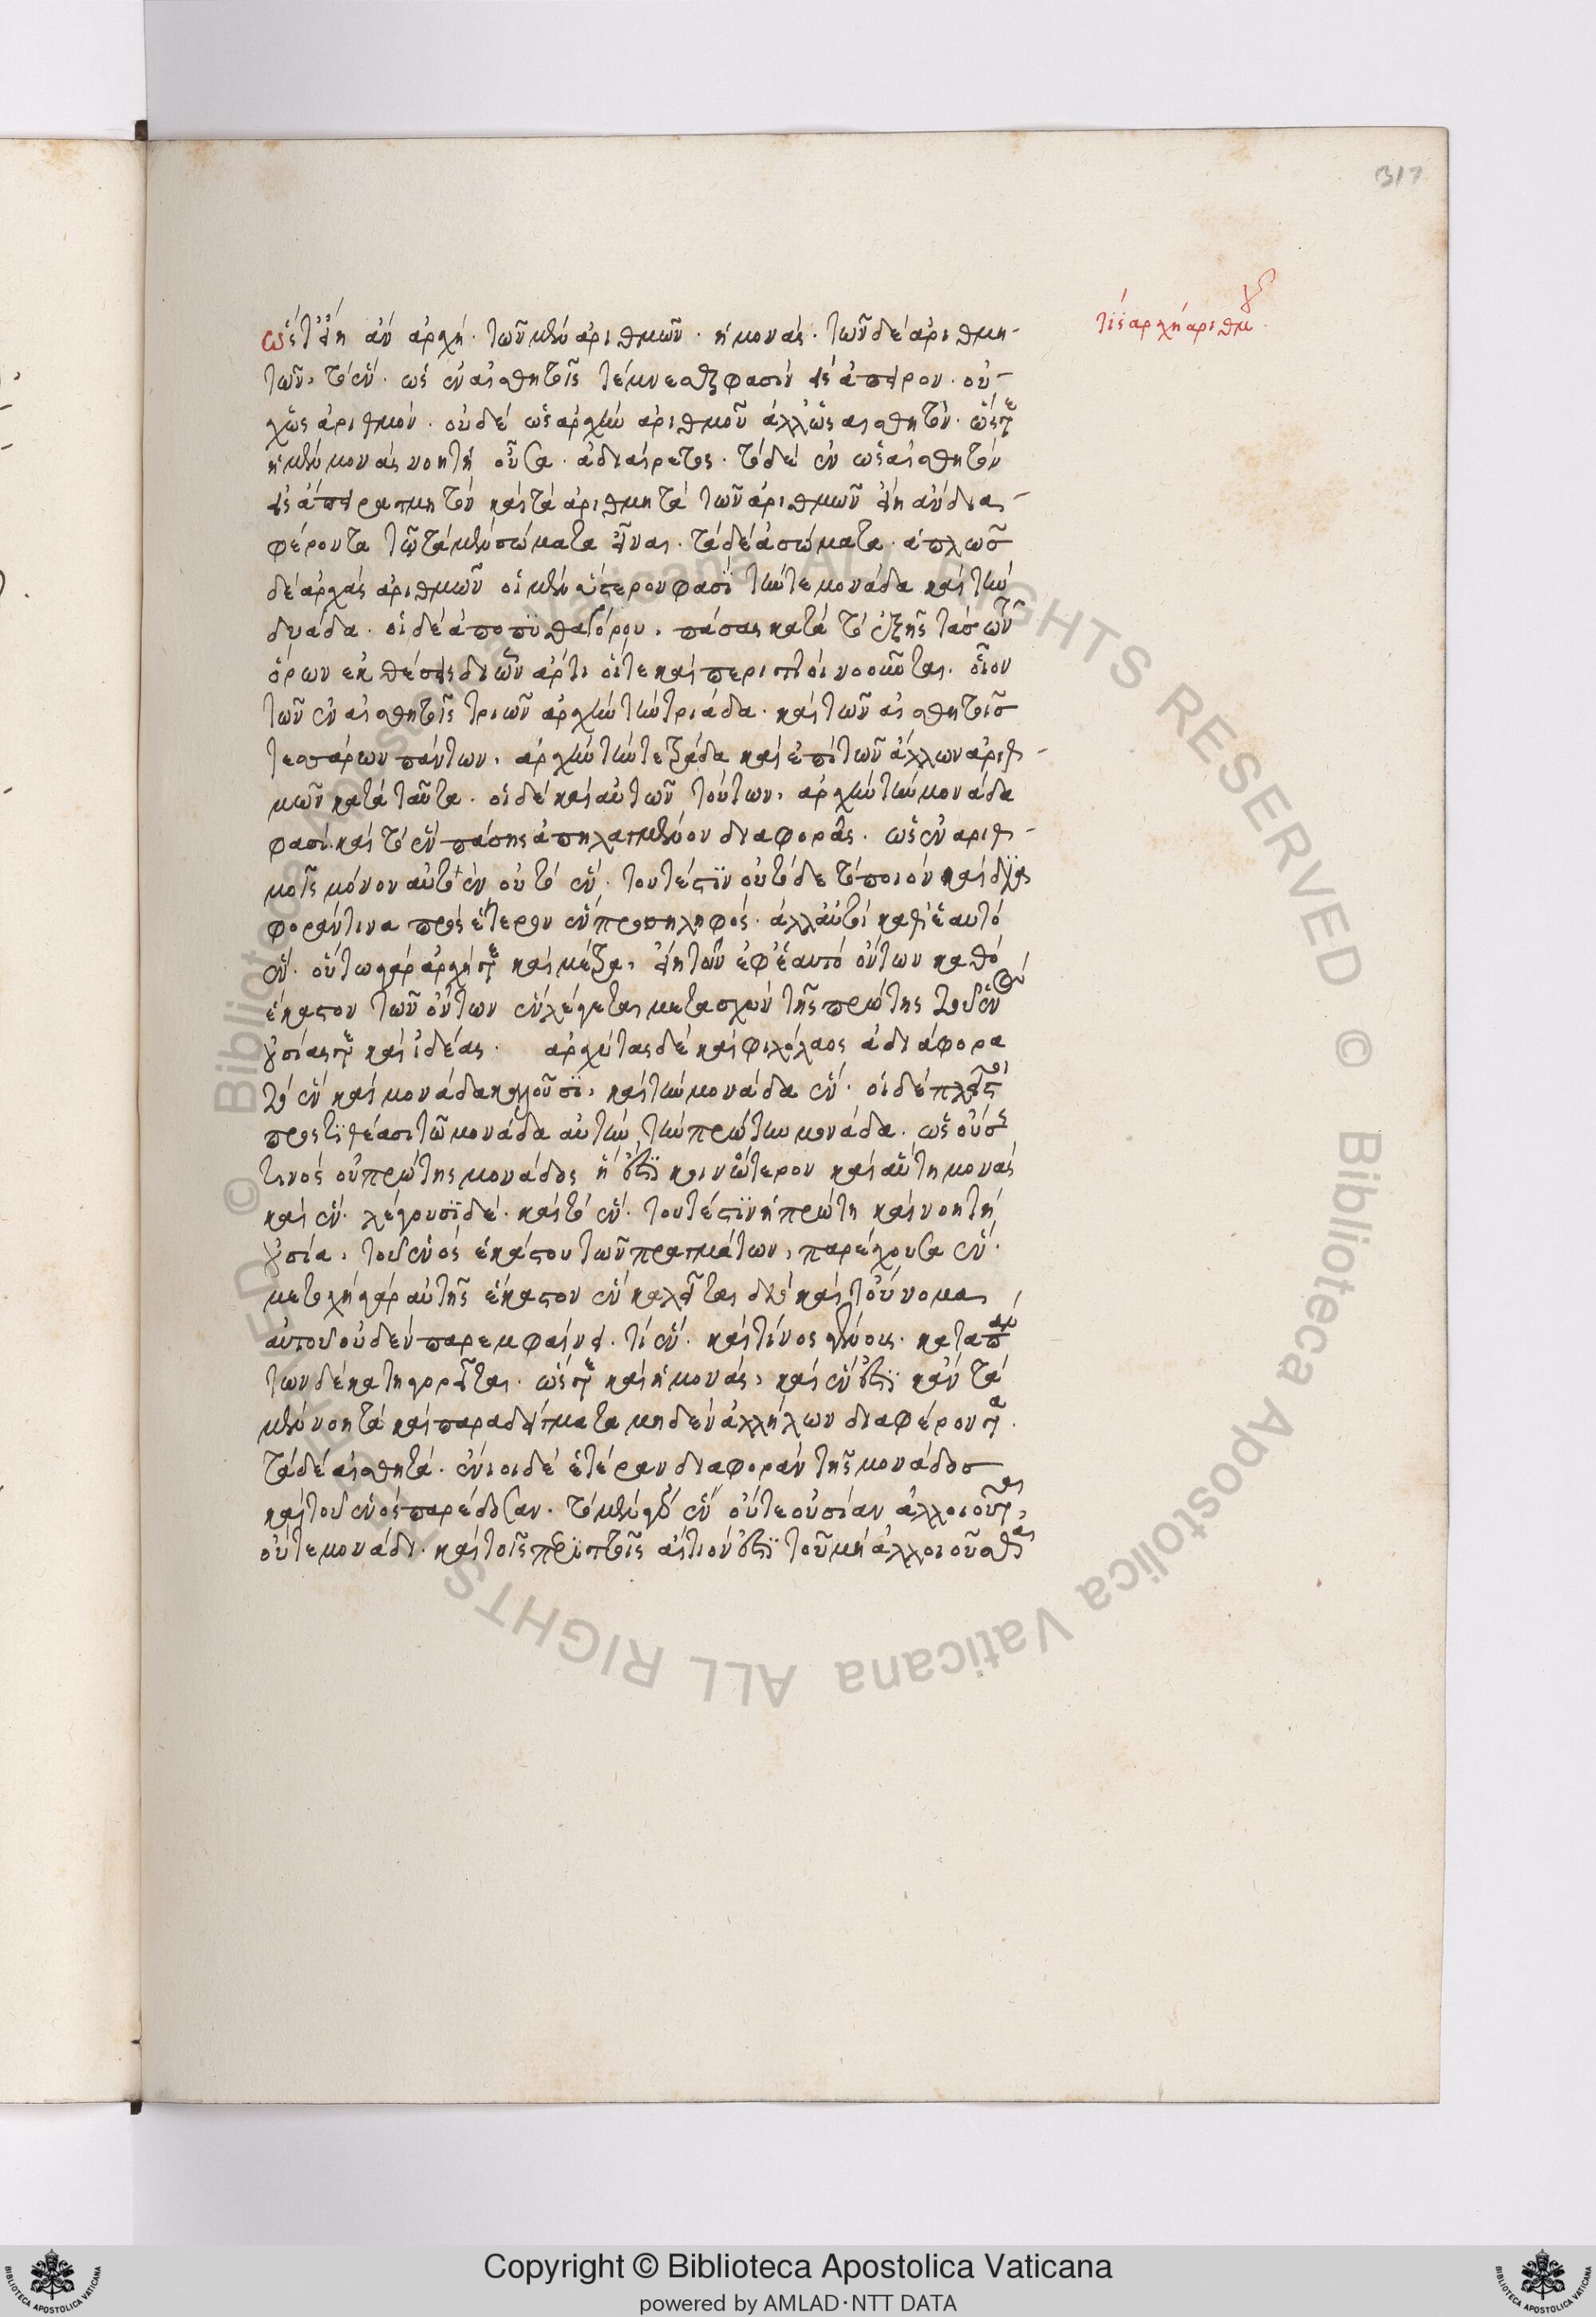 317
τίς ἀρχὴ ἀριθμοῦ
ὥστ' εἴη ἂν ἀρχὴ· τῶν μὲν ἀριθμῶν· ἡ μονάς· τῶν δὲ ἀριθμη-
τῶν, τὸ ἕν· ὡς ἐν αἰσθητοῖς τέμνεσθαι φασὶν εἰς ἄπειρον· οὐ-
χ ὡς ἀριθμὸν· οὐδὲ ὡς ἀρχὴν ἀριθμοῦ ἀλλ' ὡς αἰσθητὸν· ὥστε
ἡ μὲν μονὰς νοητὴ οὖσα· ἀδιαίρετος· τὸ δὲ ἓν ὡς αἰσθητὸν
εἰς ἄπειρα τμητὸν καὶ τὰ ἀριθμητὰ τῶν ἀριθμῶν εἴη ἂν δια-
φέροντα τῷ τὰ μὲν σώματα εἶναι· τὰ δὲ ἀσώματα· ἁπλῶσ
δὲ ἀρχὰς ἀριθμῶν οἱ μὲν ὕστερον φασὶ τήν τε μονάδα καὶ τὴν
δυάδα· οἱ δὲ ἀπὸ πυθαγόρου, πάσας κατὰ τὸ ἑξῆς τὰς τῶν
ὅρων ἐκθέσεις δι' ὧν ἄρτιοί τε καὶ περιττοὶ νοοῦνται· οἷον
τῶν ἐν αἰσθητοῖς τριῶν ἀρχὴν τὴν τριάδα· καὶ τῶν αἰσθητοῖσ
τεσσάρων πάντων, ἀρχὴν τὴν τετράδα καὶ ἐπὶ τῶν ἄλλων ἀριθ-
μῶν κατὰ ταῦτα· οἱ δὲ καὶ αὐτῶν τούτων, ἀρχὴν τὴν μονάδα
φασὶ καὶ τὸ ἓν πάσης ἀπηλλαγμένον διαφορᾶς· ὡς ἐν ἀριθ-
μοῖς μόνον αὐτὸ ἓν οὐ τὸ ἕν· τουτέστιν οὐ τόδε τὸ ποιὸν καὶ δια-
φοράν τινα πρὸς ἕτερον ἓν προσειληφός· ἀλλ' αὐτὸ καθ' ἑαυτὸ
ἕν· οὕτω γὰρ ἀρχή τε καὶ μέτρα, εἴη τῶν ἐφ' ἑαυτὸ ὄντων καθὸ
ἕκαστον τῶν ὄντων ἓν λέγεται μετασχὸν τῆς πρώτης τοῦ ἑνὸς
οὐσίας τε καὶ ἰδέας· ἀρχύτας δὲ καὶ φιλόλαος ἀδιάφορα
τὸ ἓν καὶ μονάδα καλοῦσι, καὶ τὴν μονάδα ἕν· οἱ δὲ πλεῖστοι
προστιθέασι τῷ μονάδα αὐτὴν, τὴν πρώτην μονάδα· ὡς οὔσης
τινὸς οὐ πρώτης μονάδος ἥ ἐστι κοινότερον καὶ αὐτὴ μονὰς
καὶ ἕν· λέγουσι δὲ· καὶ τὸ ἕν· τουτέστιν ἡ πρώτη καὶ νοητὴ
οὐσία, τοῦ ἑνὸς ἑκάστου τῶν πραγμάτων, παρέχουσα ἕν·
μετοχῇ γὰρ αὐτῆς ἕκαστον ἓν καλεῖται διὸ καὶ τοὔνομα
αὐτοῦ οὐδὲν παρεμφαίνει· τί ἕν· καὶ τίνος γένους· κατὰ πάν
των δὲ κατηγορεῖται· ὥστε καὶ ἡ μονὰς, καὶ ἕν ἐστι κἂν τὰ
μὲν νοητὰ καὶ παραδείγματα μηδὲν ἀλλήλων διαφέροντα·
τὰ δὲ αἰσθητά· ἔνιοι δὲ ἑτέραν διαφορὰν τῆς μονάδοσ
καὶ τοῦ ἑνὸς παρέδοσαν· τὸ μὲν γὰρ ἓν οὔτε οὐσίαν ἀλλοιοῦται,
οὔτε μονάδι· καὶ τοῖς περιττοῖς αἴτιόν ἐστι τοῦ μὴ ἀλλοιοῦσθαι
Copyright © Biblioteca Apostolica Vaticana
powered by AMLAD·NTT DATA